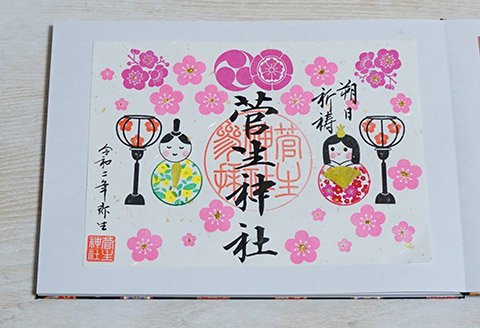 朔日
祈祷
菅生神社
菅生
神社
参拝
令和二年弥生
菅生
神社